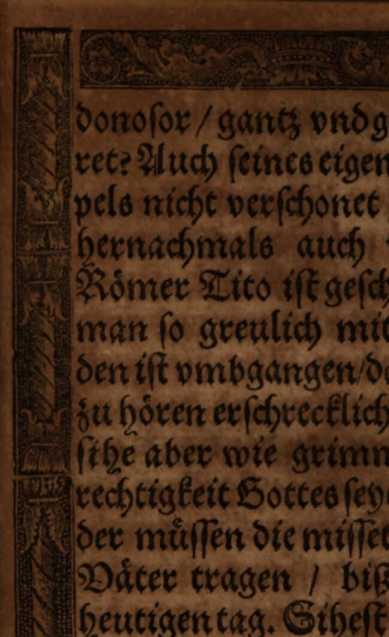 donoſor / gantz vnd g
ret? Auch ſeines eigen
pels nicht verſchonet
hernachmals auch
Römer Tito iſt geſch
man ſo greulich mit
den iſt vmbgangen / d
zu hören erſchrecklich
ſihe aber wie grimm
rechtigkeit Gottes ſey
der müſſen die miſſet
Väter tragen / biß
heutigen tag. Siheſt